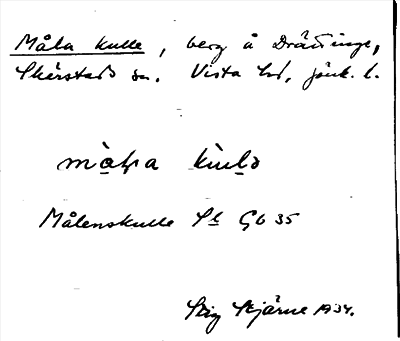 Måla kulle, berg å Drättinge,
Skärstads sn. Vista hd, jönk. l.
Målenskulle Sk Gb 35
Stig Stjärne 1934.